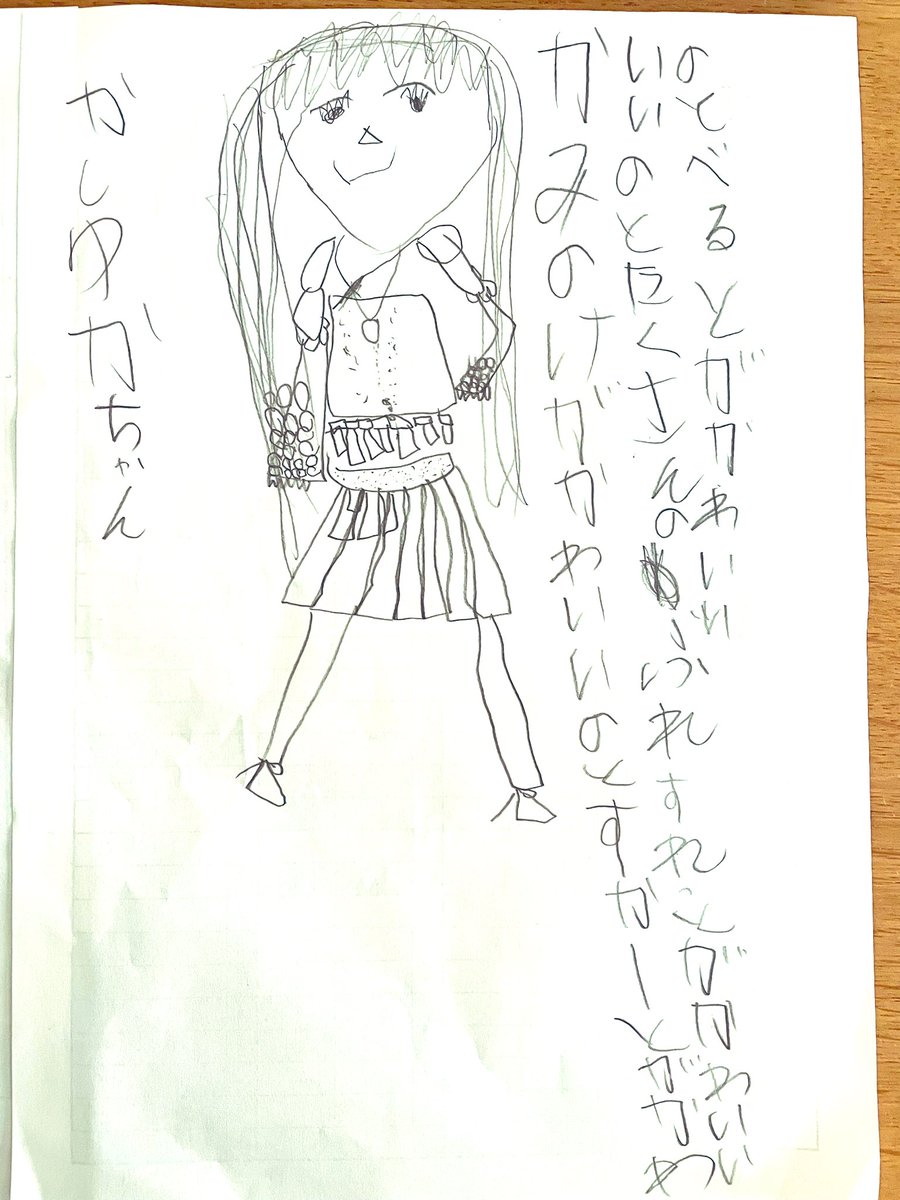 かしゆかちゃん
かみのけがかわいいのとすかーとがかわ
いいのとたくさんのぶれすれっとがかわいい
のとべるとがかわいい